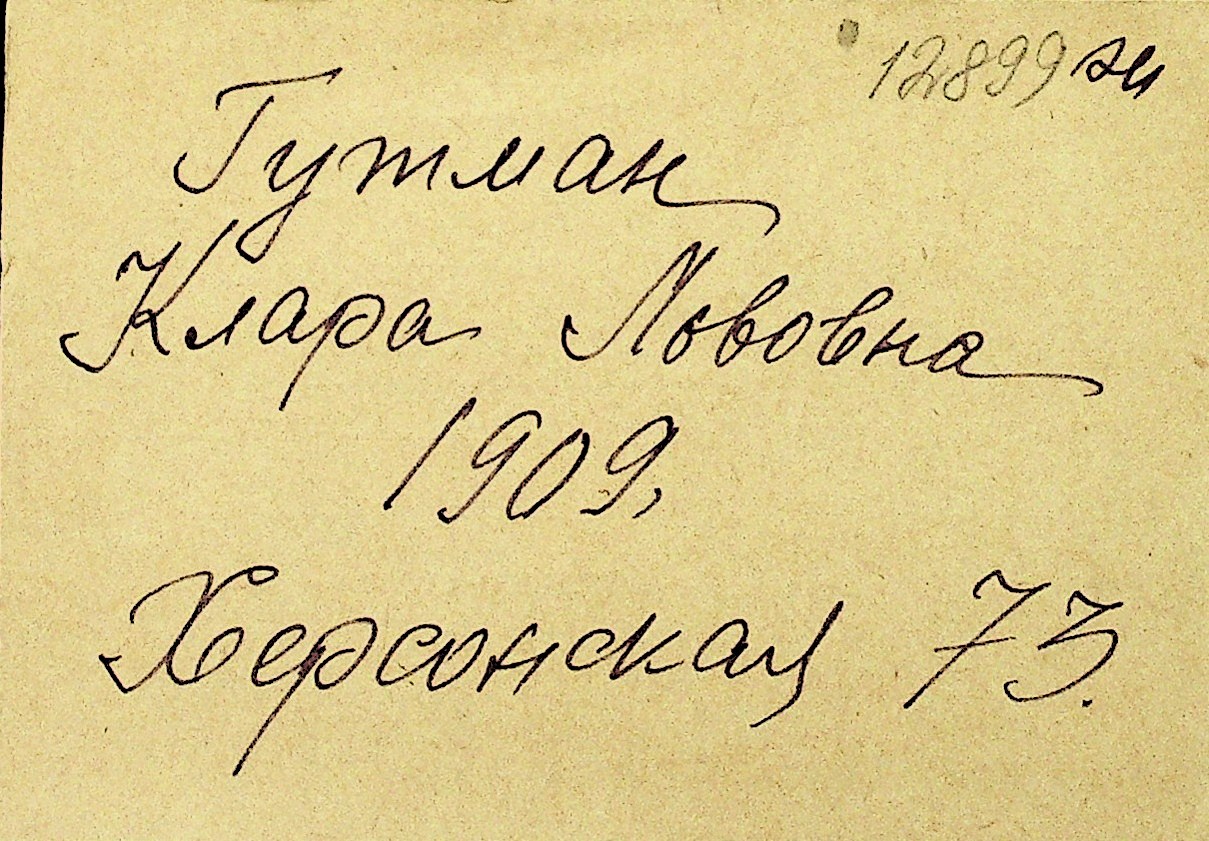 12899 эи
Гутман
Клара Львовна
1909,
Херсонская 73.